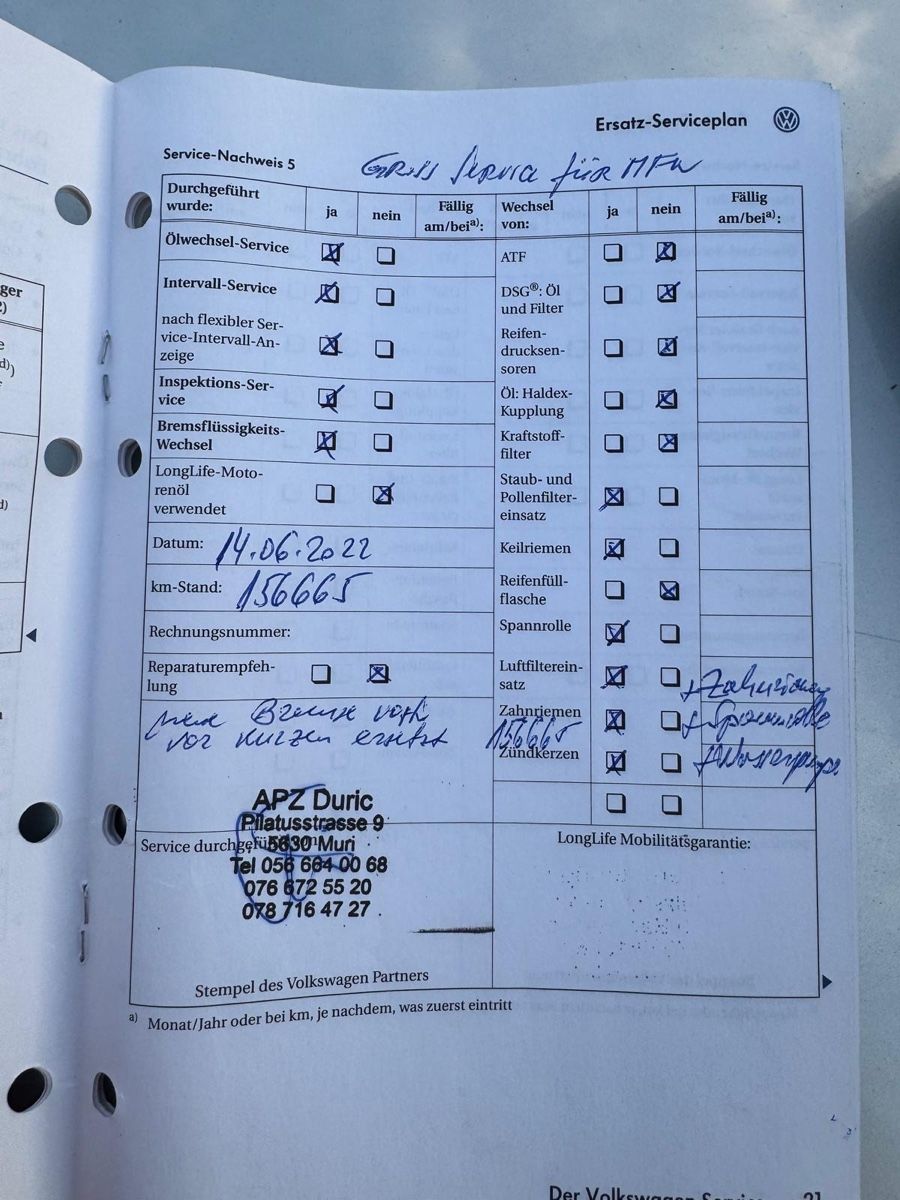 Ersatz-Serviceplan
Service-Nachweis 5
Gross Service für MFK
Durchgeführt wurde:
ja
nein
Fällig am/bei a):
Ölwechsel-Service
Intervall-Service
nach flexibler Ser-
vice-Intervall-An-
zeige
Inspektions-Ser-
vice
Bremsflüssigkeits-
Wechsel
LongLife-Moto-
renöl
verwendet
Datum: 14.06.2022
km-Stand: 156665
Rechnungsnummer:
Reparaturempfeh-
lung
neue Bremse
vor kurzen ersetzt
Wechsel von:
ja
nein
Fällig am/bei a):
ATF
DSG®: Öl
und Filter
Reifen-
drucksen-
soren
Öl: Haldex-
Kupplung
Kraftstoff-
filter
Staub- und
Pollenfilter-
einsatz
Keilriemen
Reifenfüll-
flasche
Spannrolle
Luftfilterein-
satz
+ Zahnriemen
Zahnriemen
156665
+ Spannrolle
Zündkerzen
+ Wasserpumpe
Service durchgeführt
APZ Duric
Pilatusstrasse 9
5630 Muri
Tel 056 664 00 68
076 672 55 20
078 716 47 27
Stempel des Volkswagen Partners
LongLife Mobilitätsgarantie:
a) Monat/Jahr oder bei km, je nachdem, was zuerst eintritt
Der Volkswagen Service
21